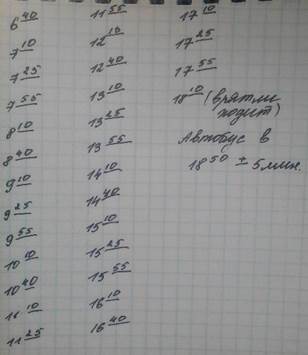 6 40
7 10
7 25
7 55
8 10
8 40
9 10
9 25
9 55
10 10
10 40
11 10
11 25
11 55
12 10
12 40
13 10
13 25
13 55
14 10
14 40
15 10
15 25
15 55
16 10
16 40
17 10
17 25
17 55
18 10 (врятли
ходит)
Автобус в
18 50 ± 5 мин.